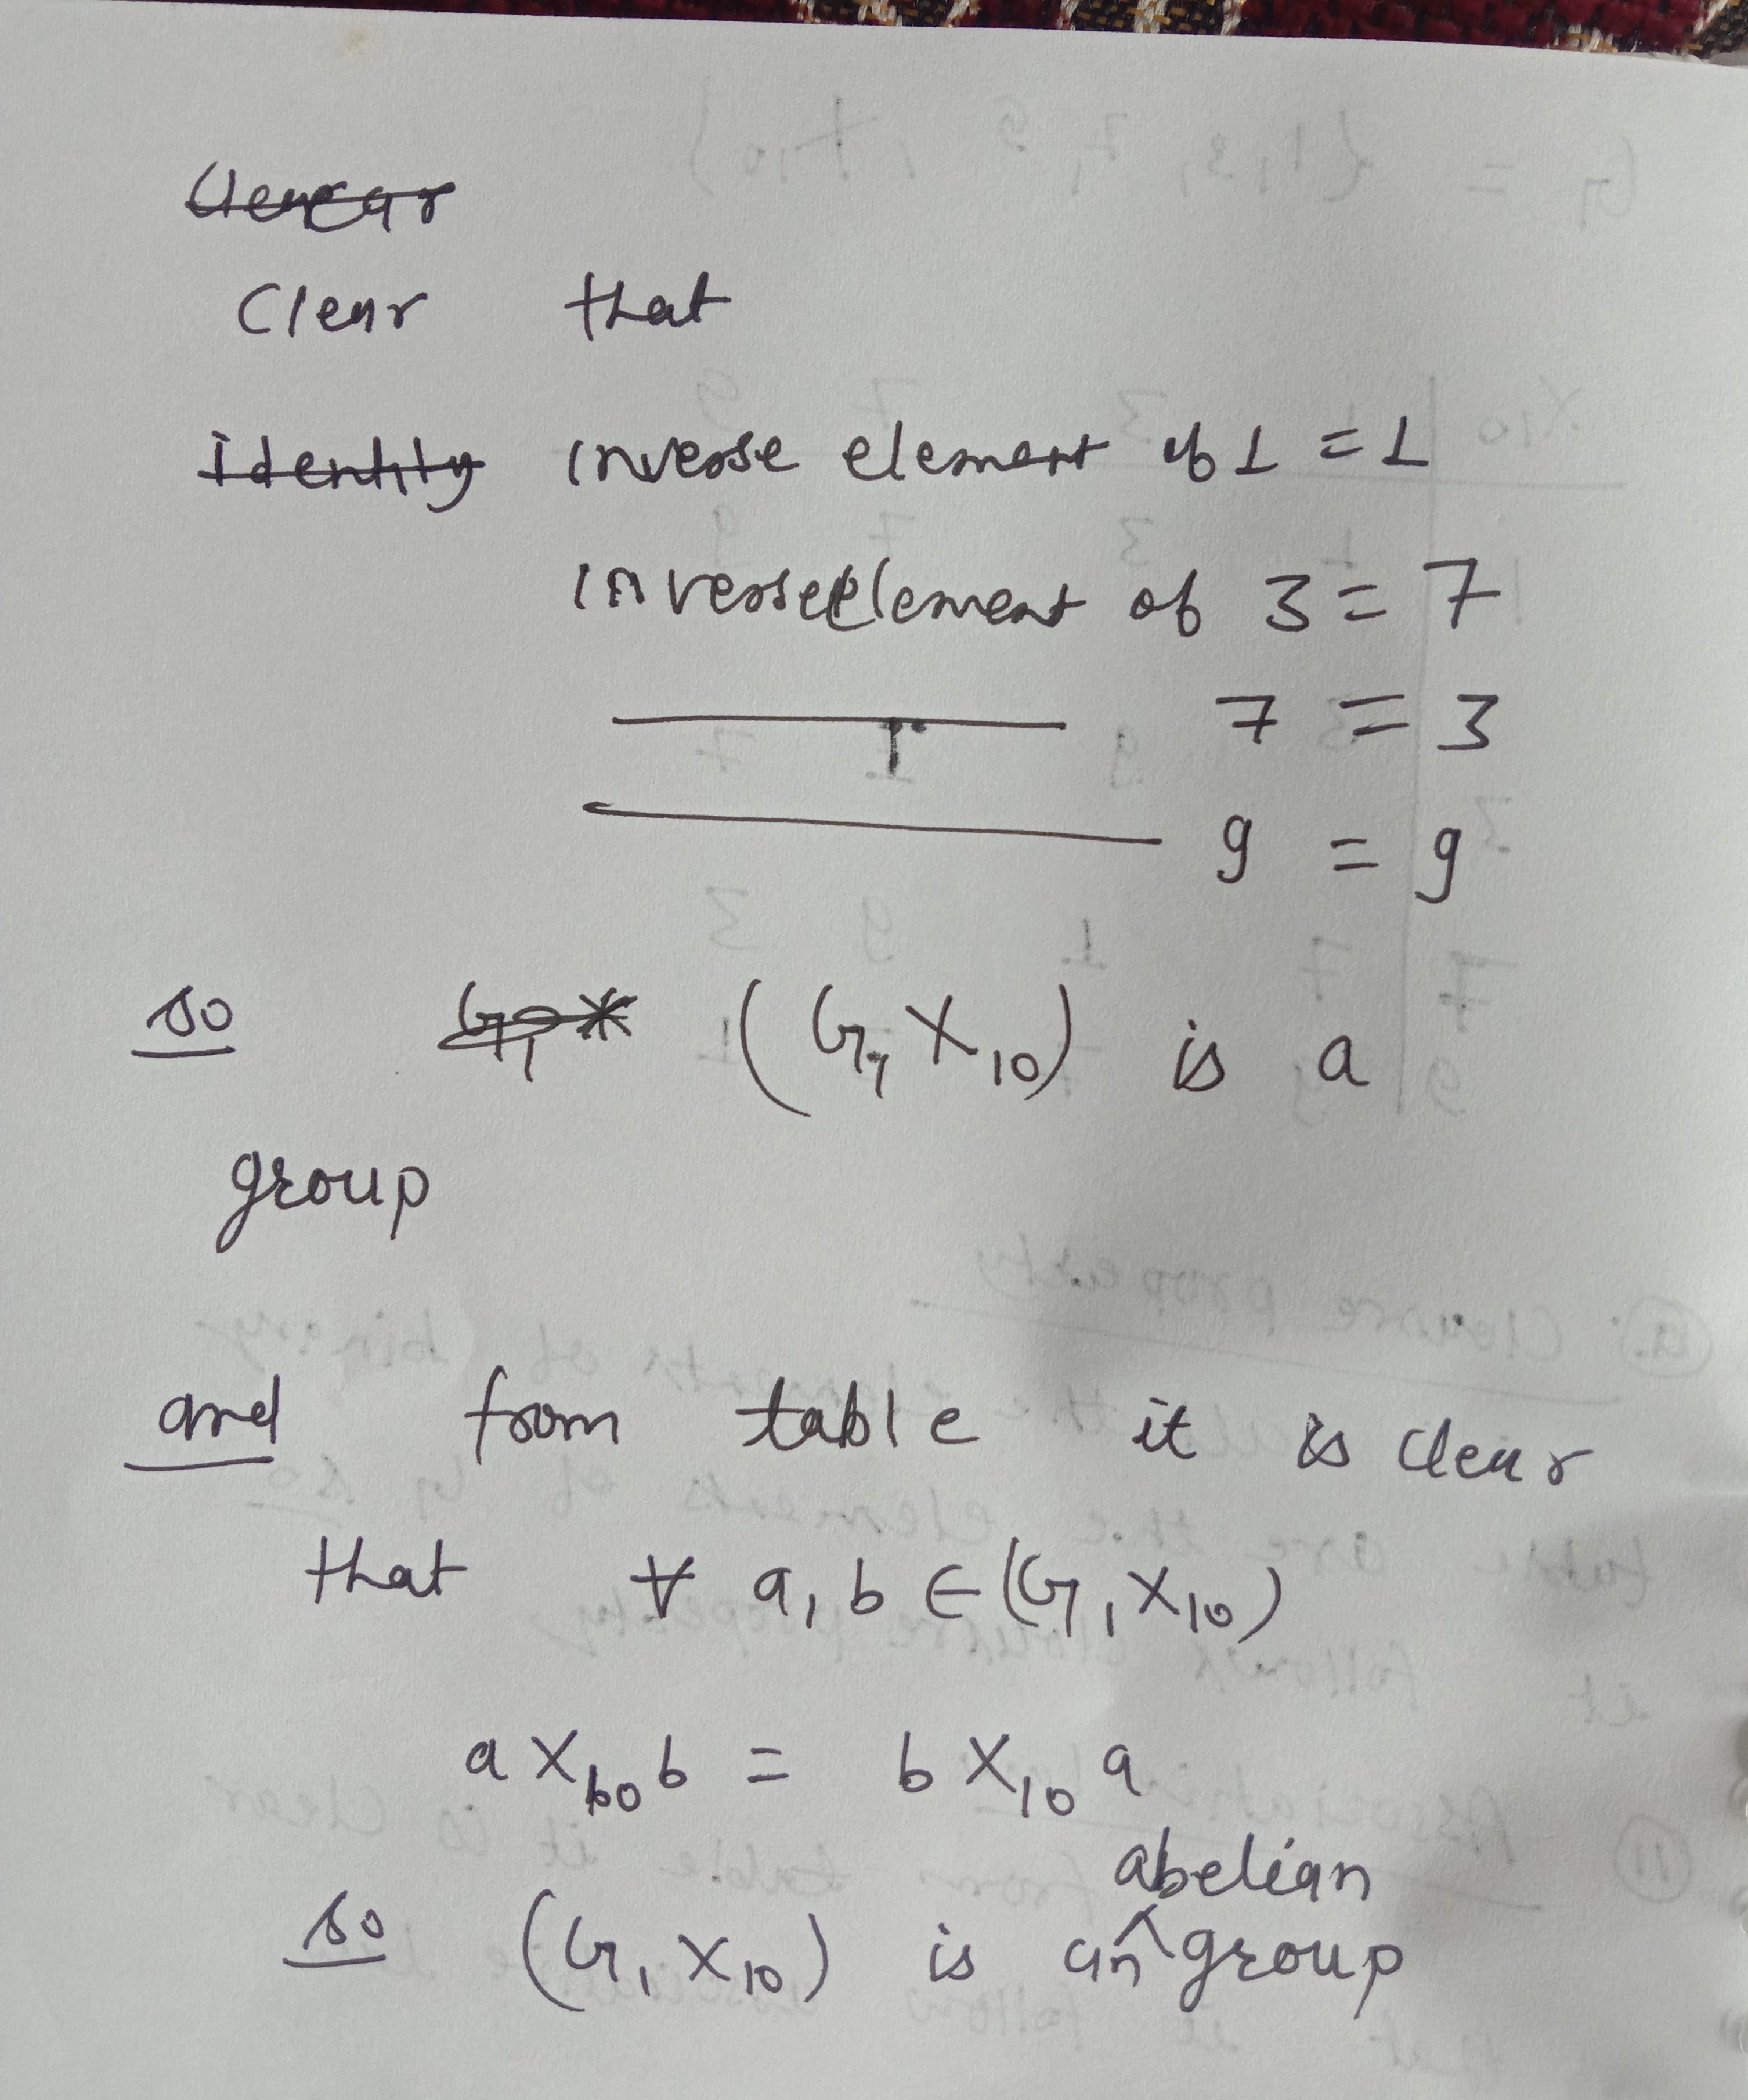 Clear that
inverse element of 1 = 1
inverse element of 3 = 7
7 = 3
9 = 9
so (G, X10) is a
group
and from table it is clear
that ∀ a, b ∈ (G, X10)
a X10 b = b X10 a
abelian
so (G, X10) is an ^ group